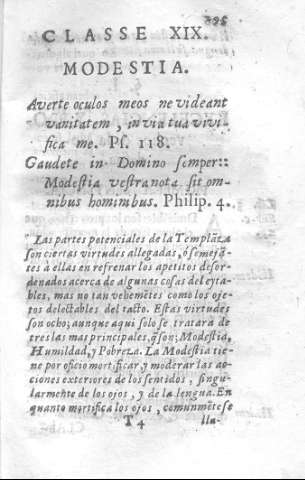 295
CLASSE XIX.
MODESTIA.
Averte oculos meos ne videant
vanitatem, in via tua vivi-
fica me. Ps. 118.
Gaudete in Domino semper::
Modestia vestra nota sit om-
nibus hominibus. Philip. 4.
Las partes potenciales de la Templāza
son ciertas virtudes allegadas, ó semejā-
tes à ellas en refrenar los apetitos desor-
denados acerca de algunas cosas deleyta-
bles, mas no tan vehemētes como los oje-
tos delectables del tacto. Estas virtudes
son ocho; aunque aqui solo se tratará de
tres las mas principales, q̃ son; Modestia,
Humildad, y Pobreza. La Modestia tie-
ne por oficio mortificar y moderar las ac-
ciones exteriores de los sentidos, singu-
larmente de los ojos, y de la lengua. En
quanto mortifica los ojos, comunmēte se
T 4 lla-